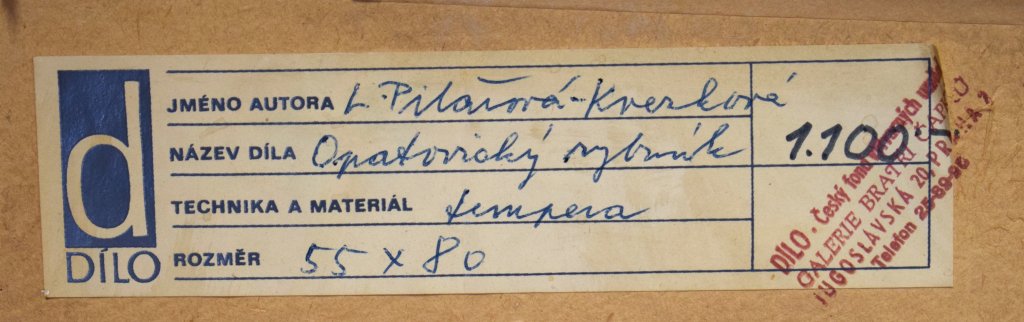 d
DÍLO
JMÉNO AUTORA L. Pilařová-Kverková
NÁZEV DÍLA Opatovický rybník
TECHNIKA A MATERIÁL tempera
ROZMĚR 55 x 80
1.100,-
DÍLO - Český fond výtvarných umění
GALERIE BRATŘÍ ČAPKŮ
JUGOSLÁVSKÁ 20, PRAHA 2
Telefon 25-89-96